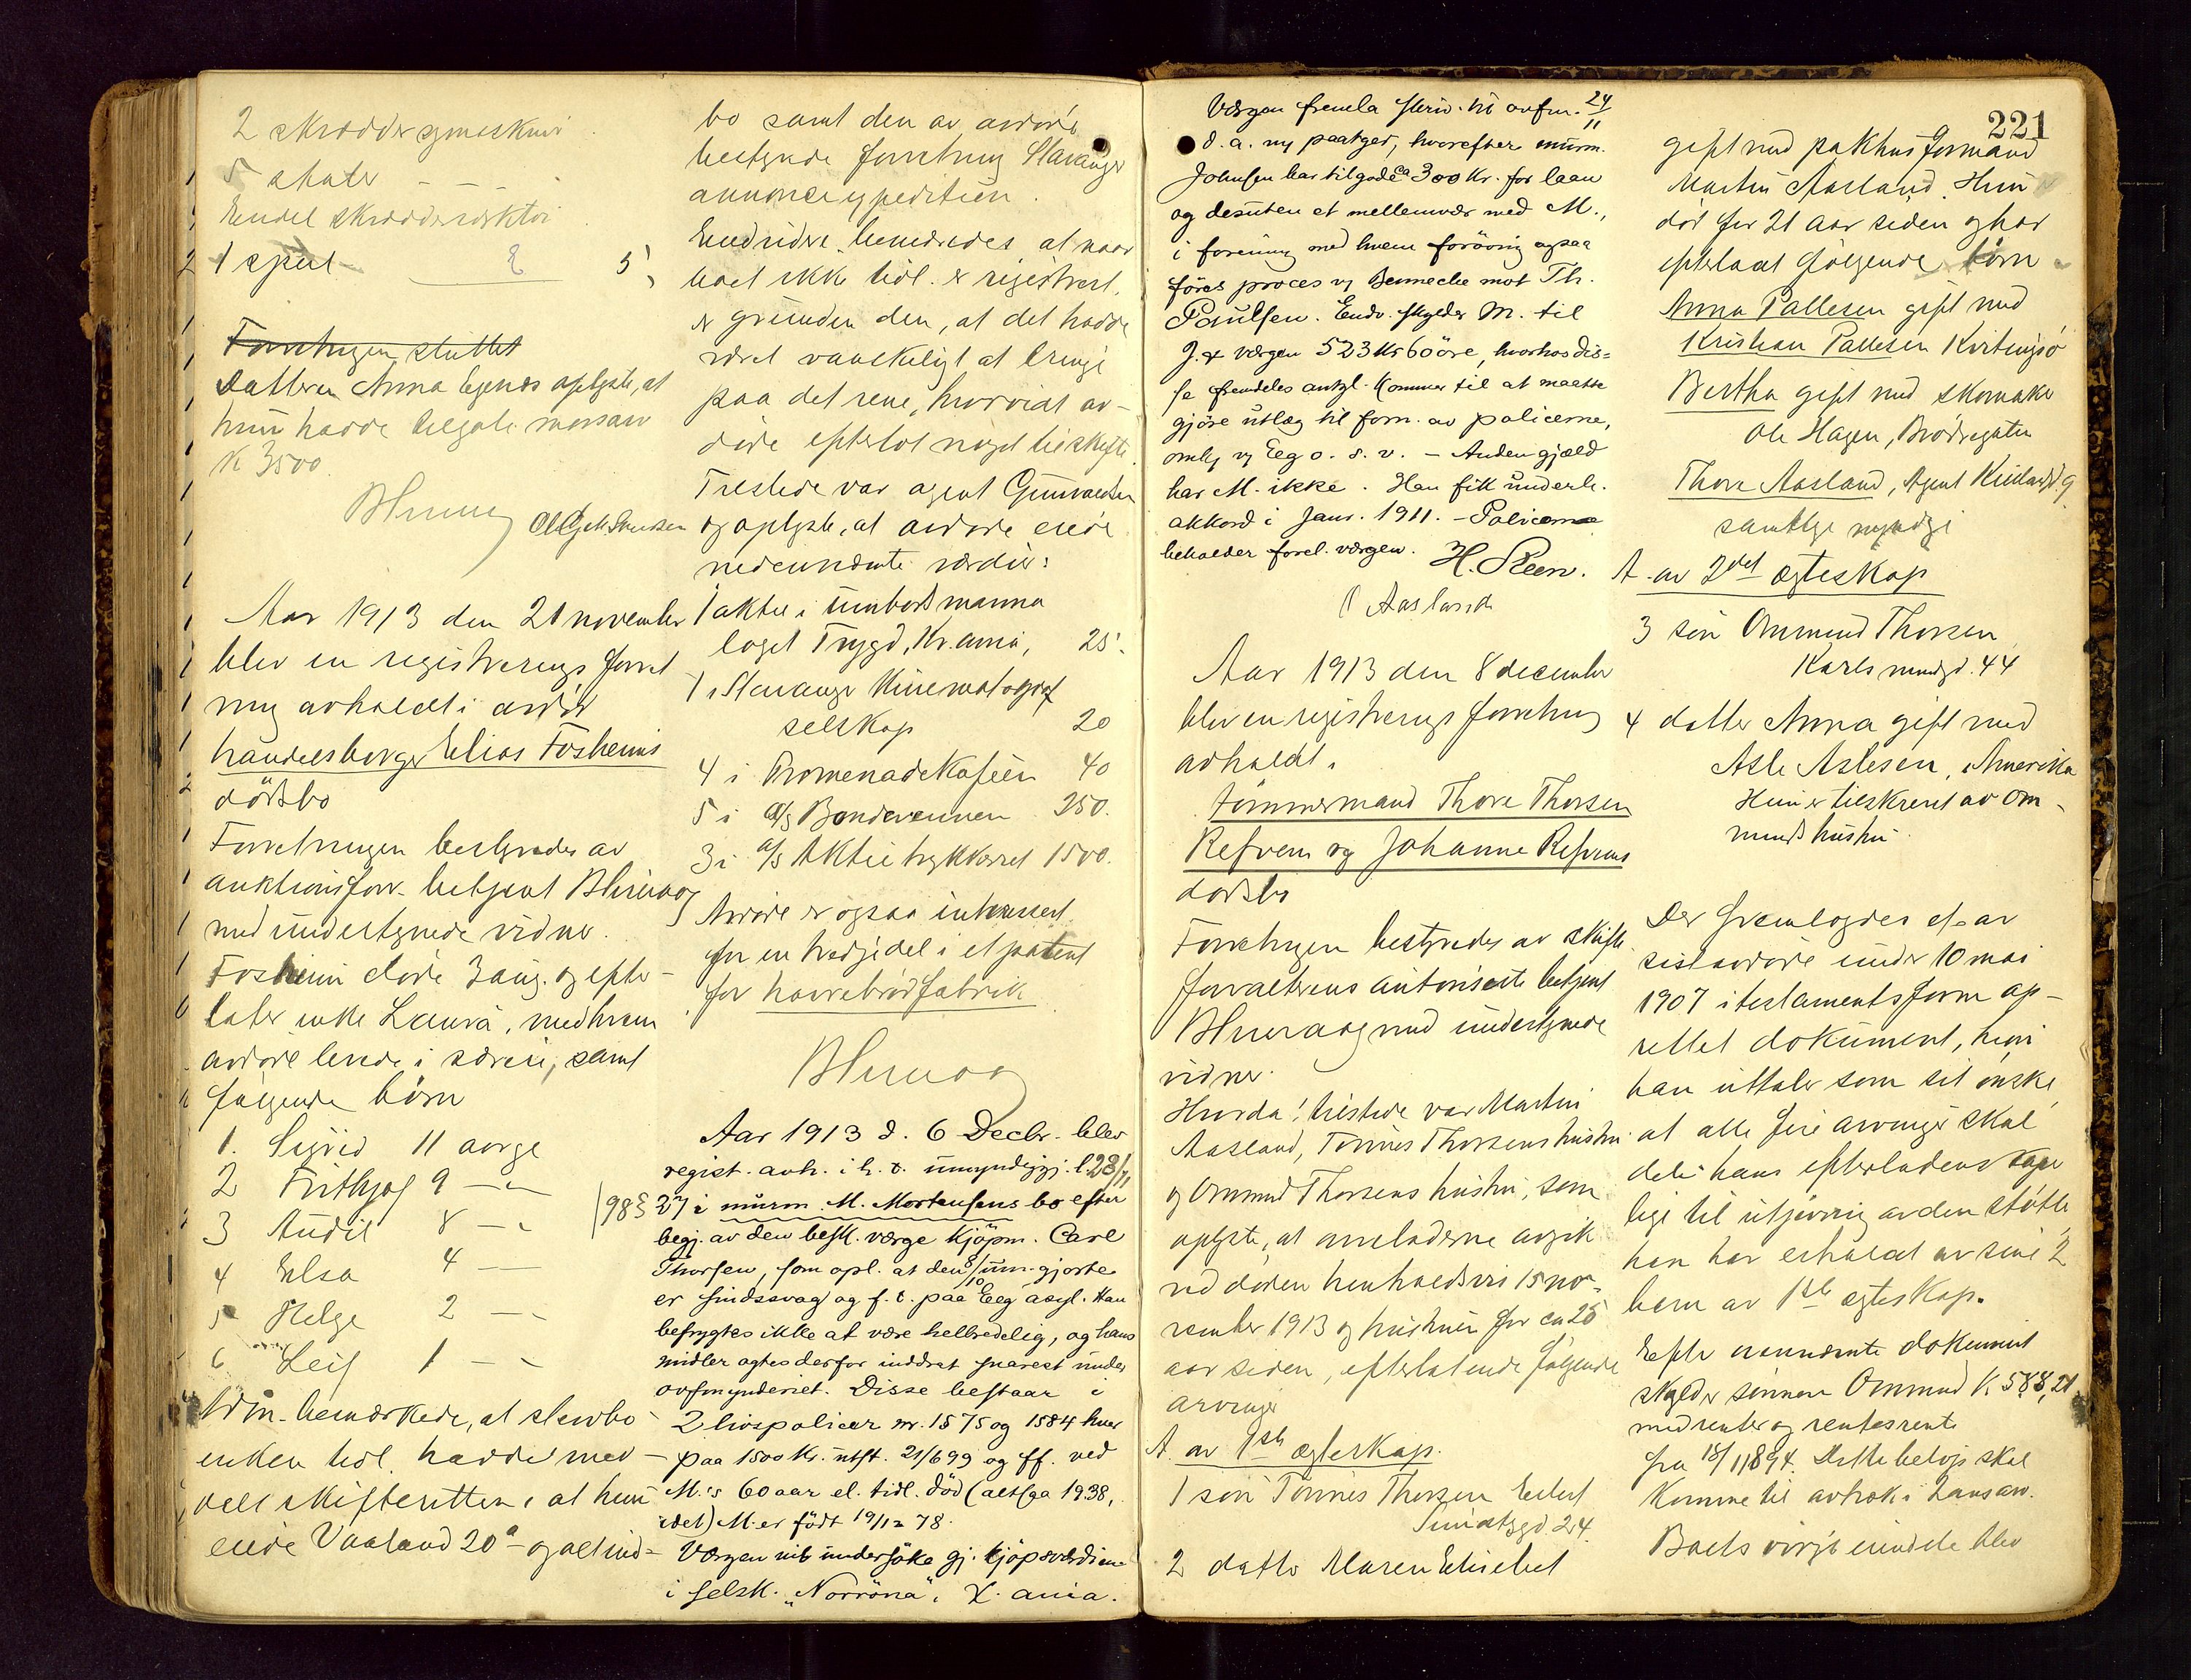 2 skrædder symaskiner
5 stoler
Endel skrædderverktøi
1 speil 5,
Forretningen sluttet
Datteren Anna Egenæs oplyste, at
hun hadde tilgode 
K 3500.
BHuaas
Aar 1913 den 21 november
blev en registrerings forret
ning avholdt i avdød
handelsborger Elias Fosheims
dødsbo
Forretningen bestyredes av
auktionsforv. betjent BHuaas
med undertegnede vidner.
Fosheim døde 3 aug. og efter-
later enke Laura, med hvem
avdøde levde i særeie, samt
følgende børn
1. Sigrid 11 aar gl
2 Fritjof 9 — "
3 Audil 8 — "
4 Elsa 4 —
5 Helge 2 — "
6 Leif 1 — "
Adm. bemærkede, at stervbo
enken tidl. hadde med-
delt skifteretten, at hun
eiede Vaaland 20a og alt ind-
bo samt den av avdøde
bestyrede forretning Stavanger
annonceexpedition.
Endvidere bemerkedes, at naar
boet ikke tidl. er registrert,
er grunden den, at det hadde
været vanskeligt at bringe
paa det rene, hvorvidt av-
døde efterlot noget til skifte.
Tilstede var agent Gunvaldsen
og oplyste, at avdøde eiede
nedennævnte værdier:
1 aktie i umbodsmanna
laget Trygd, Kr.ania, 25.
1 i Stavanger Kinematograf
selskap 20
4 i Promenadekafeen 40
5 i A/S Bondevennen 250.
3 i A/S Aktietrykkeriet 1500.
Avdøde er ogsaa interessert
for en tredjedel i et patent
for havrebrødfabrik
BHuaas
Aar 1913 d. 6 Decbr. blev
regist. avh. i h. t. umyndiggj. l. 28/11
1898 § 27 i murm. M. Mortensens bo efter
begj. av den besk. værge kjøpm. Carl
Thorsen, som opl. at den 8/10 um. gjorte
er sindssvag og f. t. paa Eeg asyl. Han
befrygtes ikke at være helbredelig, og hans
midler agtes derfor inddrat snarest under
overformynderiet. Disse bestaar i
2 livspolicer nr. 1575 og 1584 hver
paa 1500 Kr. utst. 21/6 99 og ff. ved
M.'s 60 aar el. tidl. død (altsaa 1938,
idet) M. er født 19/12 78.
Værgen vil undersøke gj. kjøpsværdiene
i selsk. "Norröna", X. ania.
Værgen fremla skriv. til ovfm. 24/11
d. a. ny paatgn, hvorefter murm.
Johnsen har tilgode ca 300 Kr. for laan
og desuten et mellemvær med M.,
i forening med hvem forøvrig ogsaa
føres proces v/ Benneche mot Th.
Paulsen. Endv. skylder M. til
J. & værgen 523 Kr 60 øre, hvorhos dis-
se fremdeles antgl. kommer til at maatte
gjøre utlæg til forn. av policerne,
omk. v/ Eeg o. s. v. — Anden gjæld
har M. ikke. Han fik underh.
akkord i Janr. 1911. — Policerne
beholder forel. værgen. H. Steen.
Aasland
Aar 1913 den 8 december
blev en registrerings forretning
avholdt i
tømmermand Thore Thorsen
Refvem og Johanne Refvems
dødsbo
Forretningen bestyredes av skifte
forvalterens autoriserte betjent
BHuaas med undertegnede
vidner.
Hvorda! tilstede var Martin
Aasland, Tønnes Thorsens hustru
og Ommund Thorsens hustru, som
oplyste, at anmeldte avgik
ved døden henholdsvis 15 no-
vember 1913 og hustruen for ca 25
aar siden, efterlatende følgende
arvinger
A. av 1ste ægteskap.
1 søn Tønnes Thorsen 
24.
2 datter Maren Elisebet
221
gift med pakhusformand
Martin Aasland. Hun
død for 21 aar siden og har
efterlatt følgende børn
Anna Pallesen gift med
Kristian Pallesen Kvitingsø
Bertha gift med skomaker
Ole Hagen, Brødregaten
Thore Aasland, Agent 9
samtlige myndige
A. av 2det ægteskap
3 søn Ommund Thorsen
Karls mindegd. 44
4 datter Anna gift med
Asle Aslesen, Amerika
Hun er tilskrevet av Om-
munds hustru.
Der fremlagdes et av
sistavdøde under 10 mai
1907 i testamentsform op-
rettet dokument, hvori
han uttaler som sit ønske,
at alle fire arvinger skal
dele hans efterladenskaper
lige til utjevning av den støtte
han har erholdt av sine 2
børn av 1ste ægteskap.
Efter nævnte dokument
skylder sønnen Ommund K 588,21
med renter og rentesrente
fra 18/11 1894. Dette beløp skal
komme til avtræk i hans arv.
Boets øvrige eiendele blev